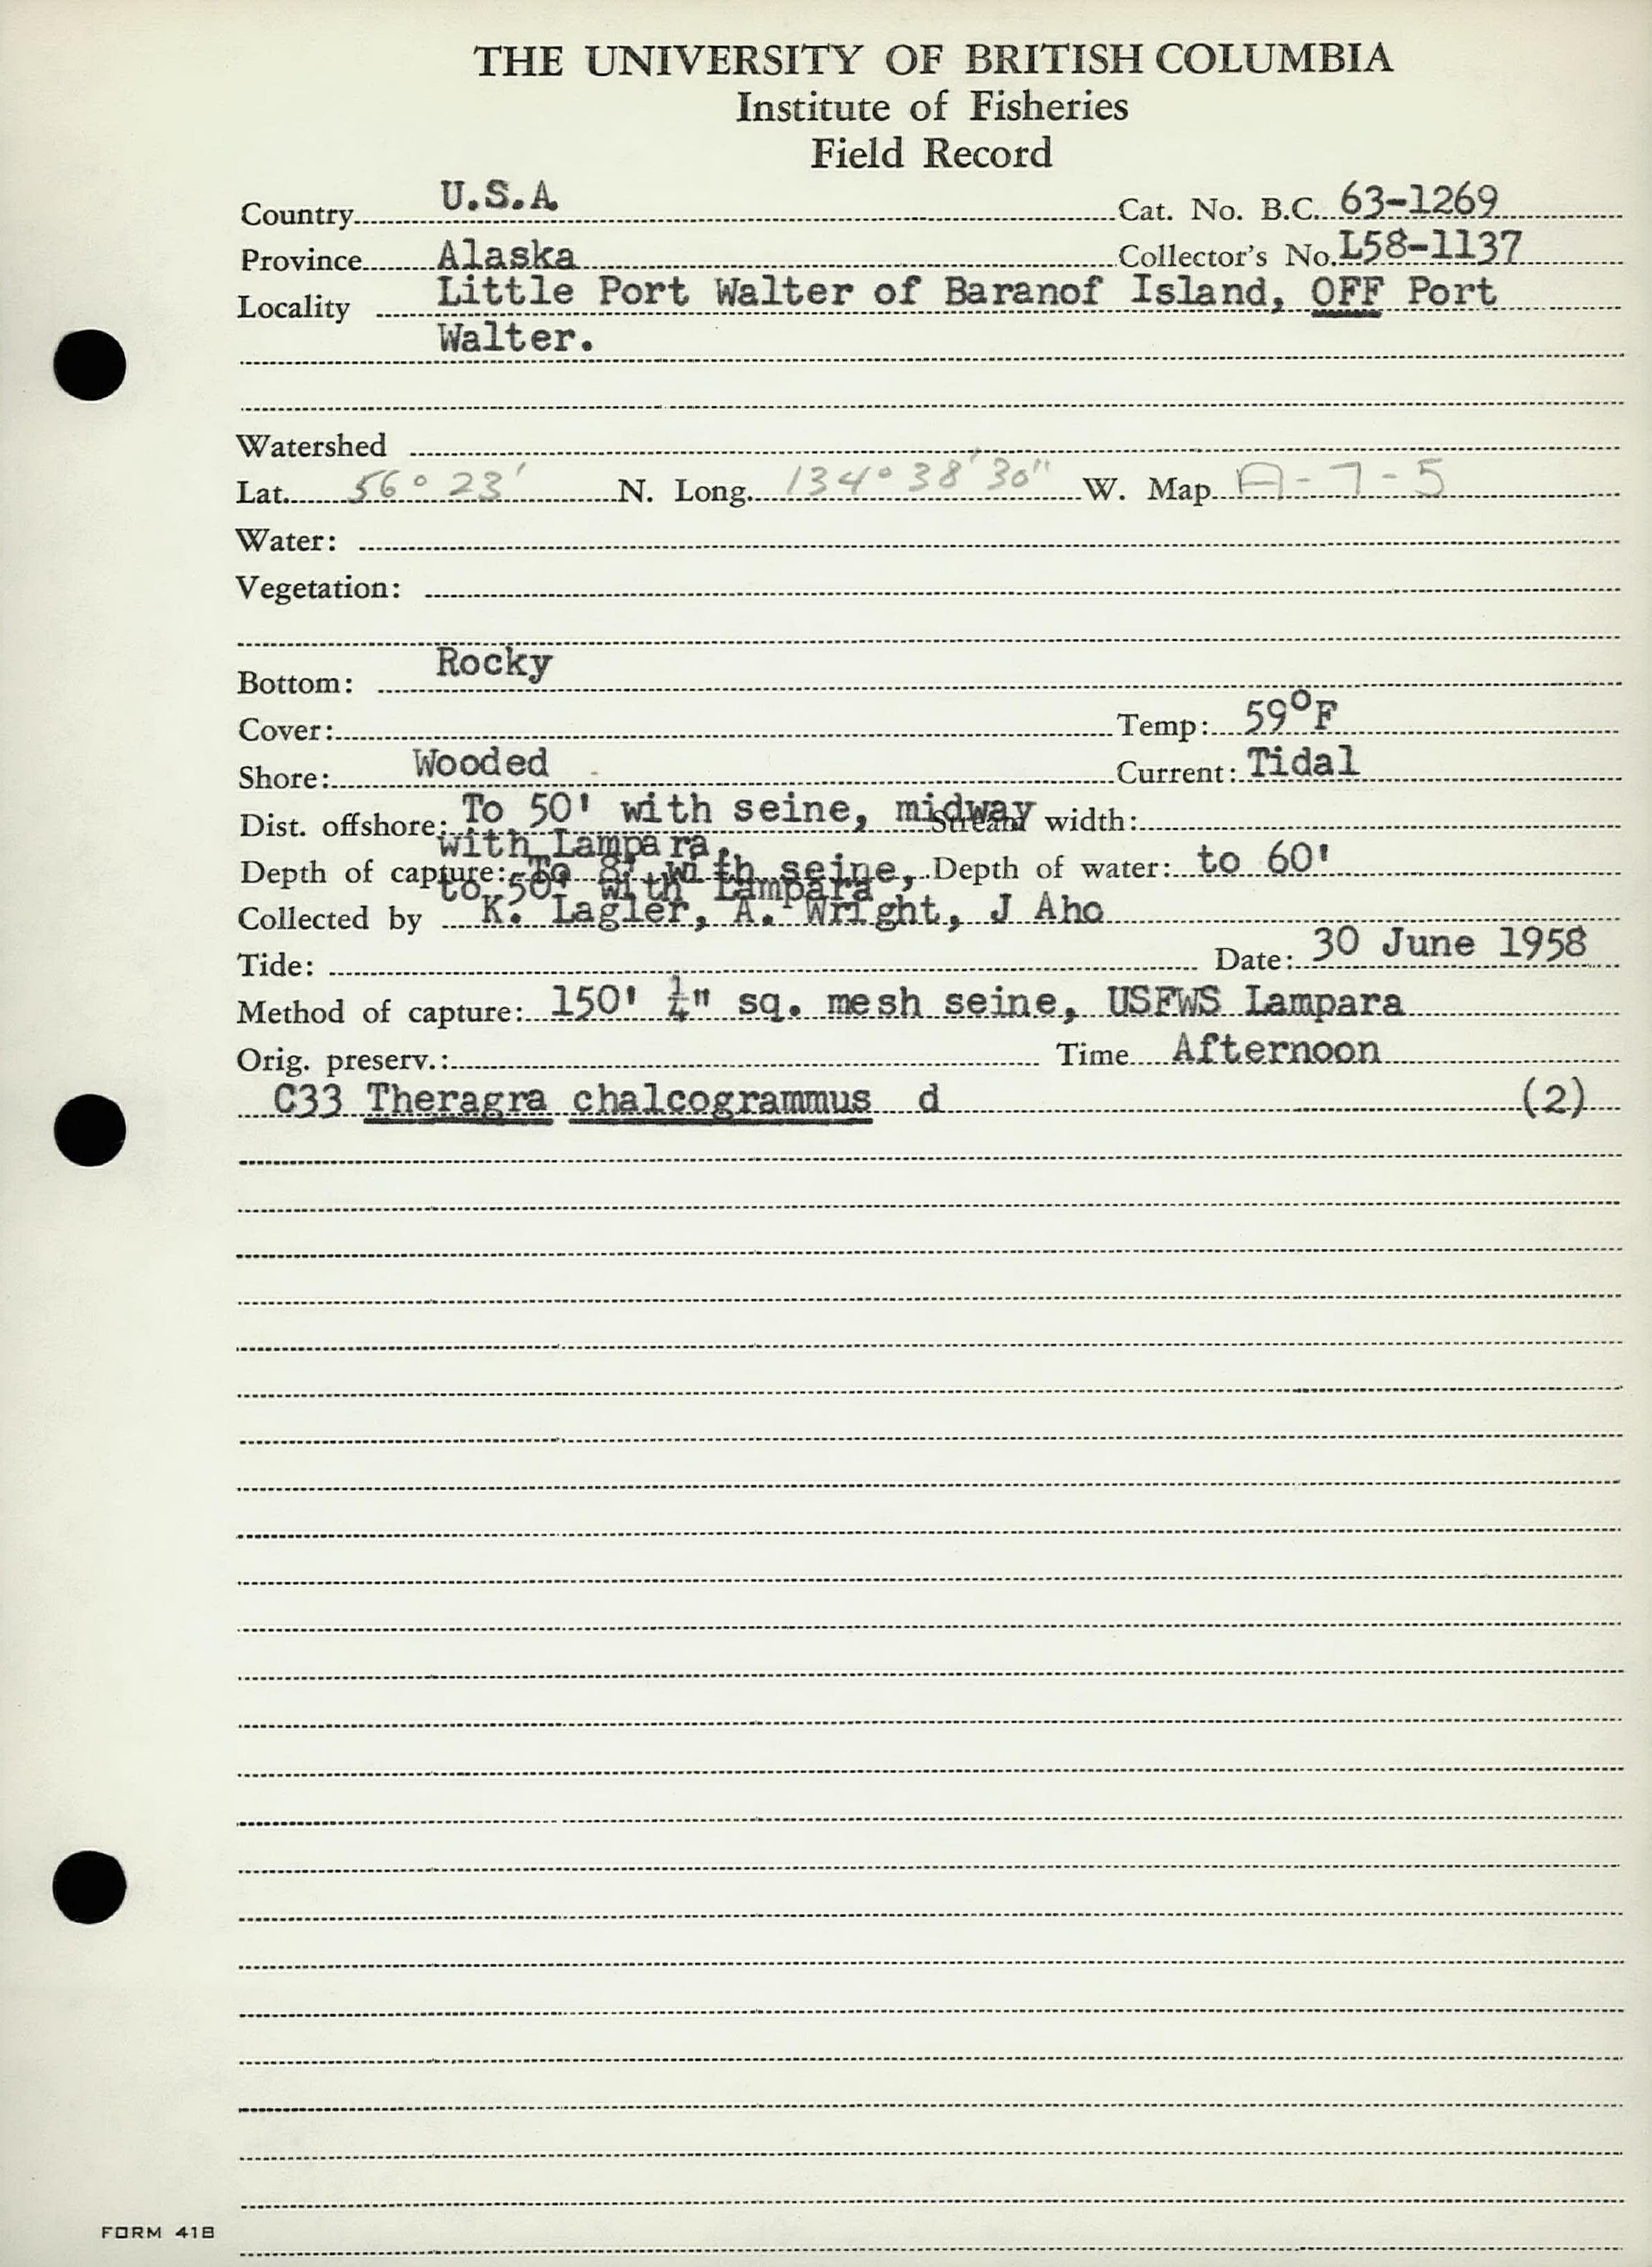 THE UNIVERSITY OF BRITISH COLUMBIA
Institute of Fisheries
Field Record
Country U.S.A Cat. No. B.C. 63-1269
Province Alaska Collector's No. L58-1137
Locality Little Port Walter of Baranof Island, OFF Port
Walter.
Watershed
Lat. 56° 23' N. Long. 134° 38' 30" W. Map A-7-5
Water:
Vegetation:
Bottom: Rocky
Cover: Temp: 59°F
Shore: Wooded Current: Tidal
Dist. offshore: To 50' with seine, midway Stream width:
with Lampara.
Depth of capture: To 8' with seine, Depth of water: to 60'
to 50' with Lampara
Collected by K. Lagler, A. Wright, J Aho
Tide: Date: 30 June 1958
Method of capture: 150' ¼" sq. mesh seine, USFWS Lampara
Orig. preserv.: Time Afternoon
C33 Theragra chalcogrammus d (2)
FORM 41B